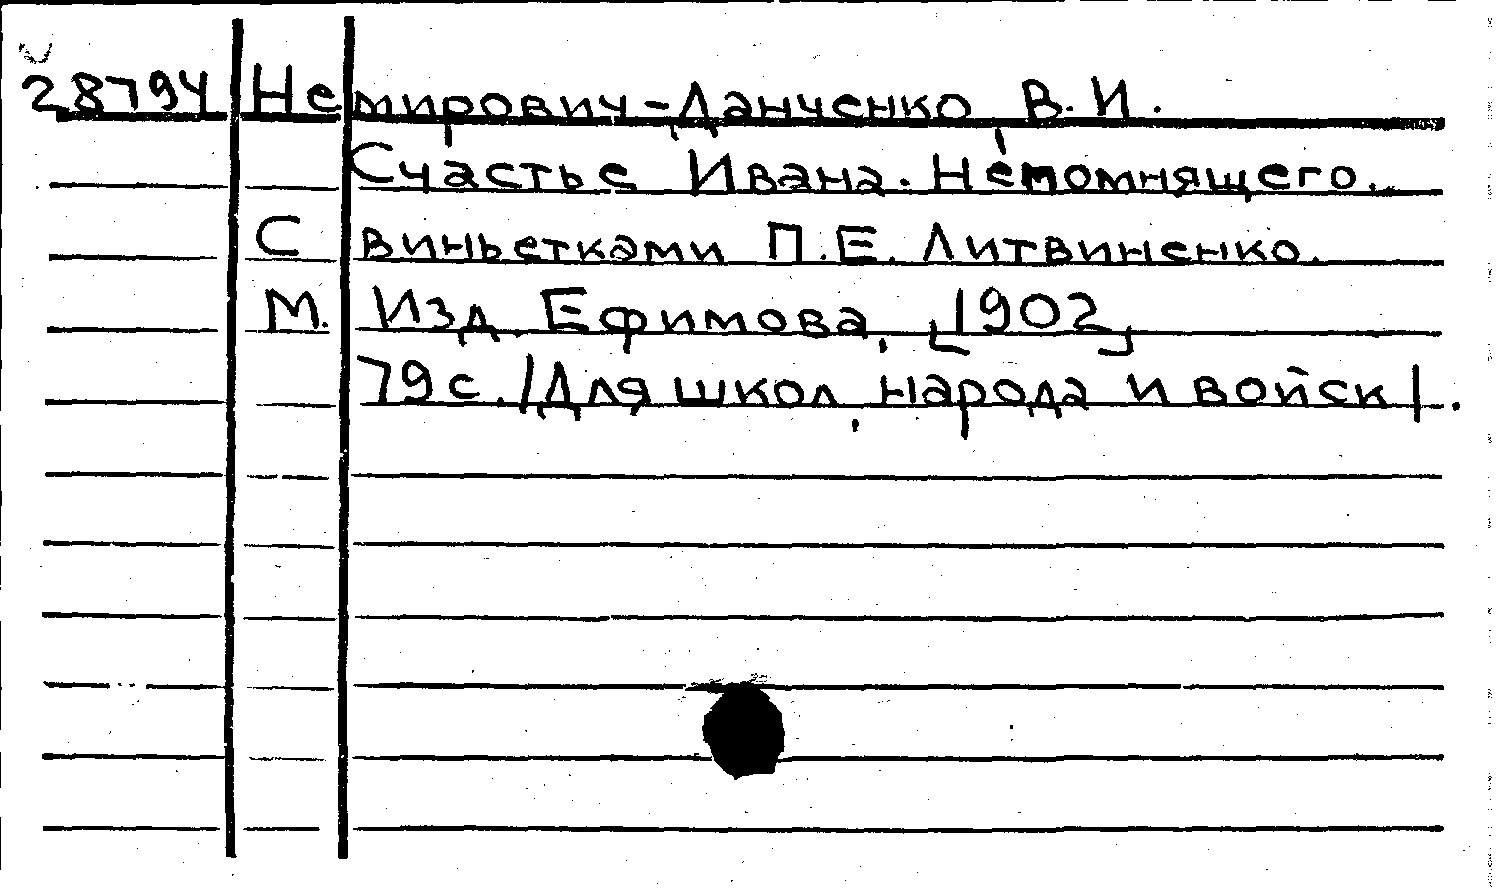 28794 Немирович-Данченко, В. И.
Счастье Ивана Непомнящего.
С виньетками П.Е. Литвиненко.
М. Изд. Ефимова, [1902]
79 с. /Для школ, народа и войск/.